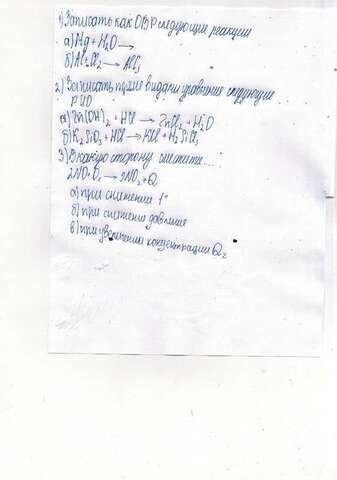 1) Записать как ОВР следующие реакции
а) Mg + H₂O →
б) Al + Cl₂ → AlCl₃
2) Записать тремя видами уравнения следующие
РИО
а) Zn(OH)₂ + HCl → ZnCl₂ + H₂O
б) K₂SiO₃ + HCl → KCl + H₂SiO₃
3) В какую сторону сместится...
2NO + O₂ → 2NO₂ + Q
а) при снижении t°
б) при снижении давления
в) при увеличении концентрации O₂